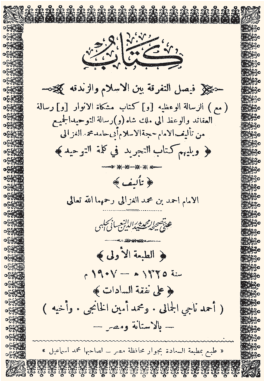 كتاب
فيصل التفرقة بين الاسلام والزندقه
(مع) الرسالة الوعظيه [و] كتاب مشكاة الانوار [و] رسالة
العقائد والوعظ الى ملك شاه (و) رسالة التوحيد الجميع
من تأليف الامام حجة الاسلام أبي حامد محمد الغزالى
ويليهم كتاب التجريد في كلمة التوحيد
تأليف
الامام احمد بن محمد الغزالى رحمهما الله تعالى
الطبعة الأولى
سنة ١٣٢٥ هـ — ١٩٠٧ م
على نفقة السادات
(أحمد ناجي الجمالى . ومحمد أمين الخانجى . وأخيه)
— بالاستانة ومصر —
« طبع بمطبعة السعادة بجوار محافظة مصر — لصاحبها محمد اسماعيل »